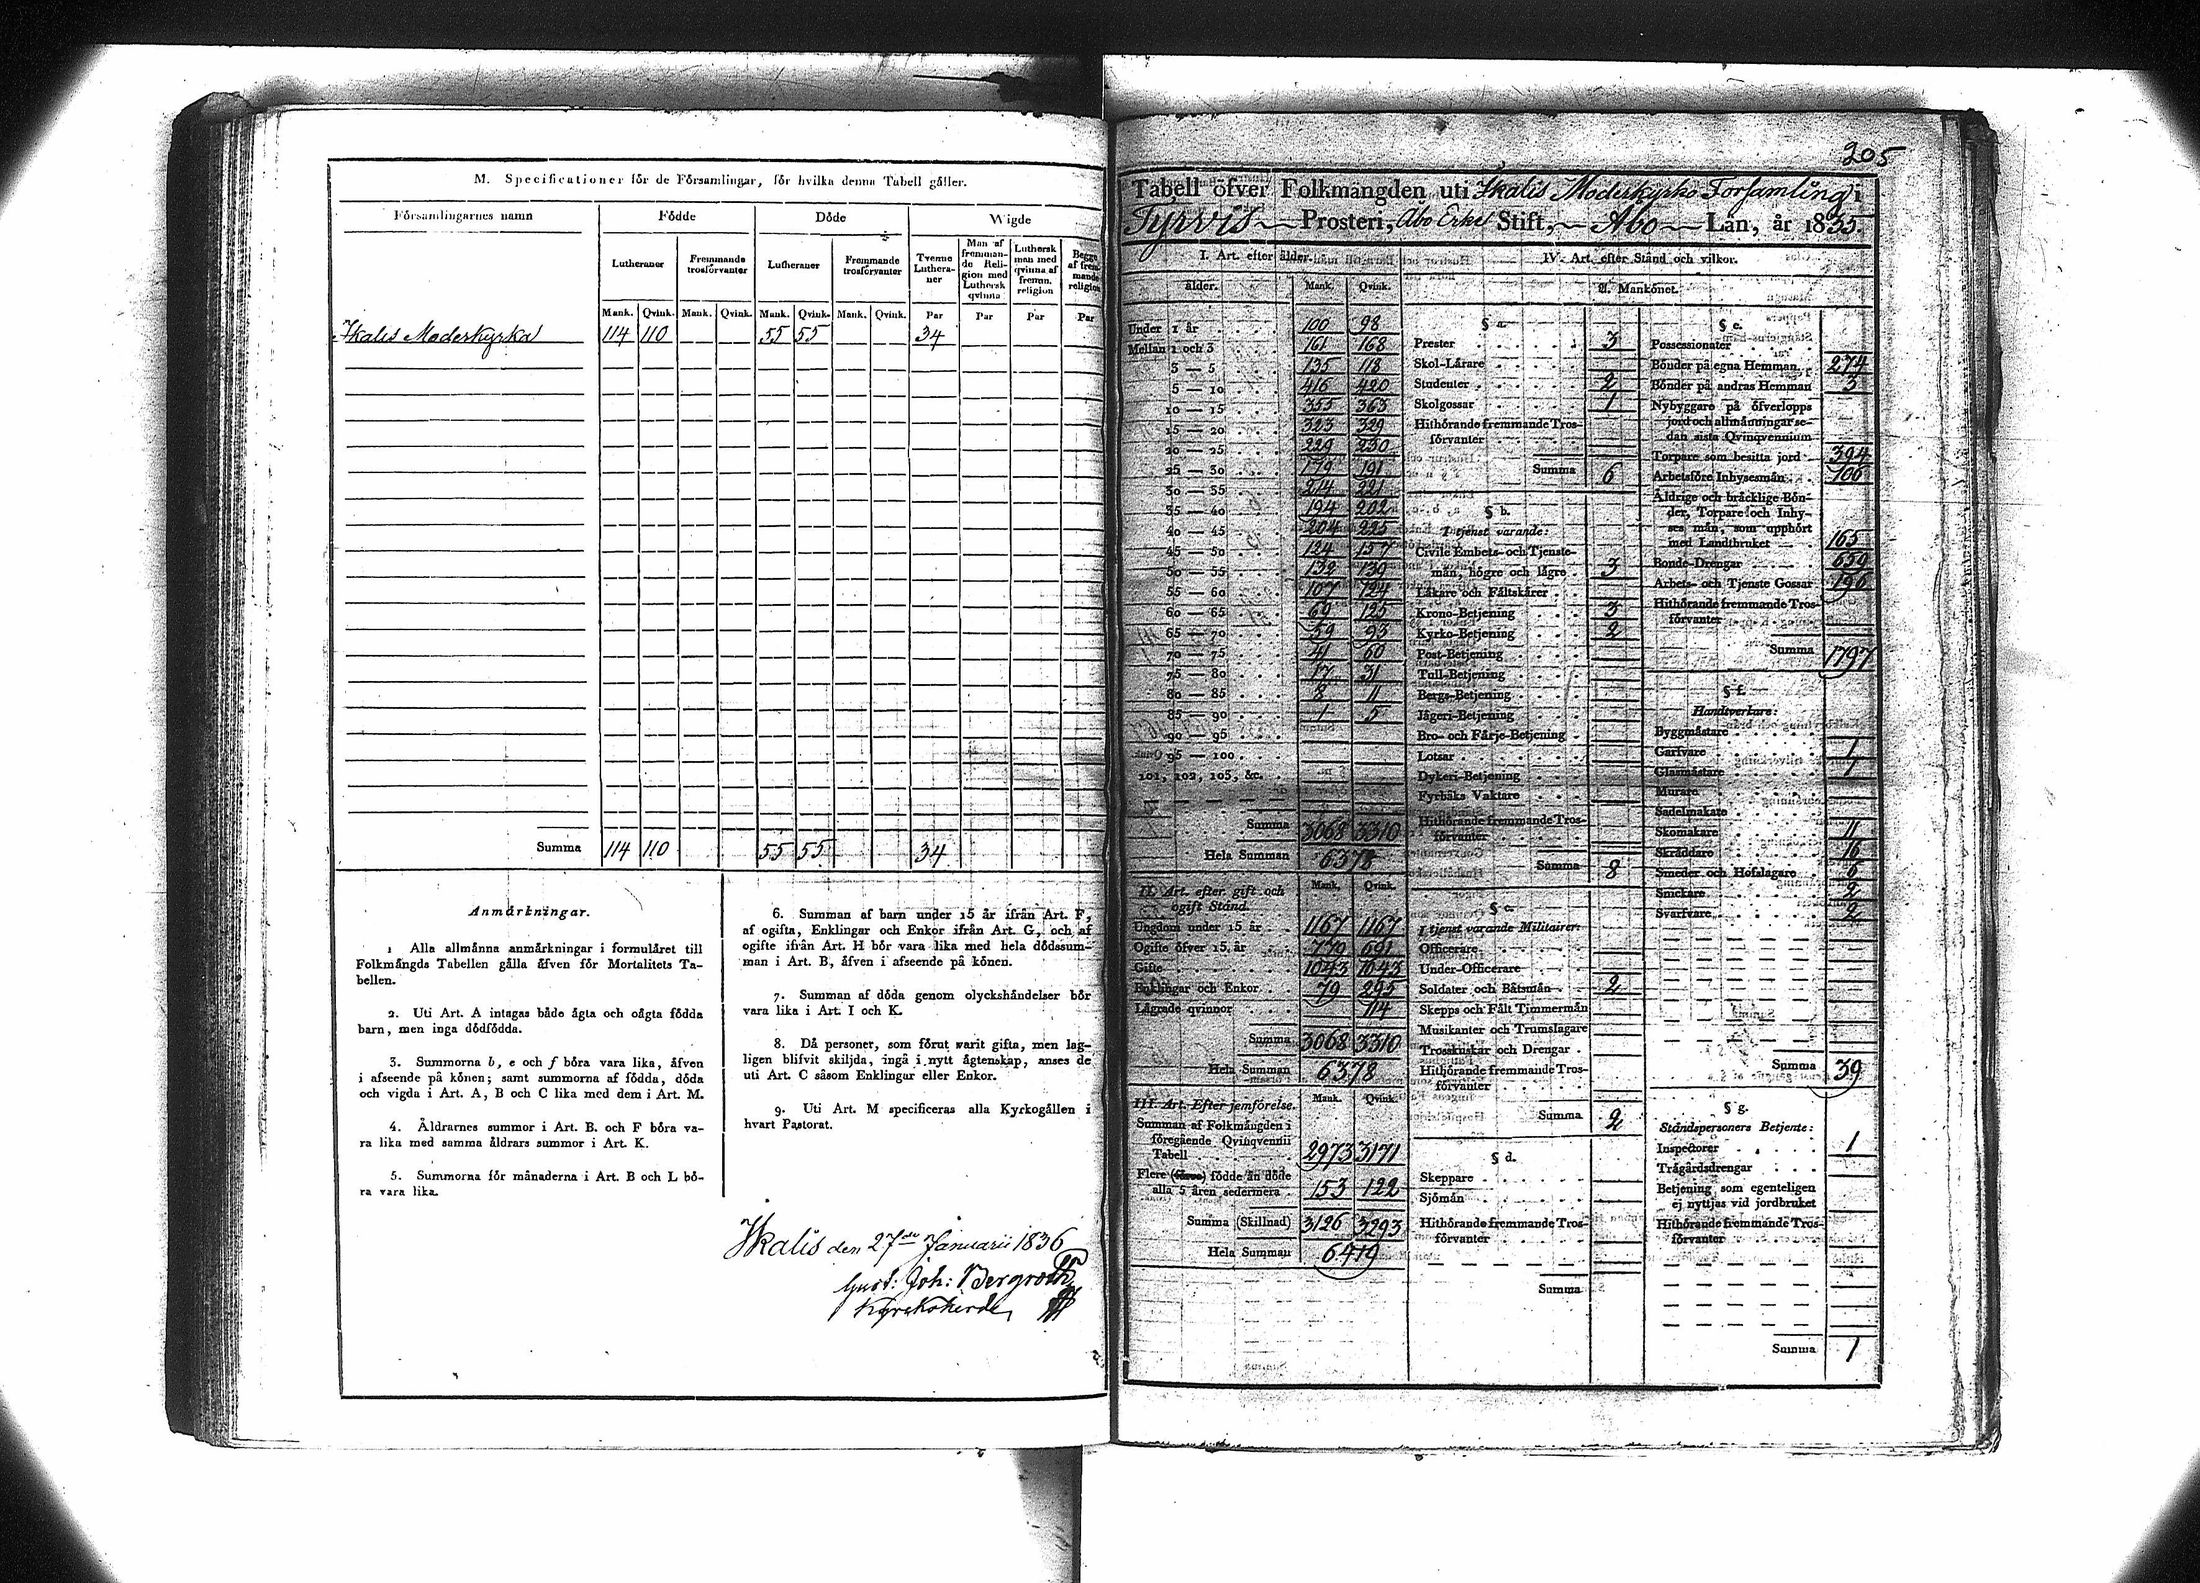 M. Specificationer för de Församlingar, för hvilka denna Tabell gäller.
Församlingarnes namn Födde Döde Wigde
Lutheraner Fremmande trosförvanter Lutheraner Fremmande trosförvanter Tvenne Lutheraner Man af fremmande Religion med Luthersk qvinna Luthersk man med qvinna af fremm. religion Begge af fremmande religion
Mank. Qvink. Mank. Qvink. Mank. Qvink. Mank. Qvink. Par Par Par Par
Ikalis Moderkyrka 114 110 55 55 34
Summa 114 110 55 55 34
Anmärkningar.
1 Alla allmänna anmärkningar i formuläret till
Folkmängds Tabellen gälla äfven för Mortalitets Ta-
bellen.
2. Uti Art. A intagas både ägta och oägta födda
barn, men inga dödfödda.
3. Summorna b, e och f böra vara lika, äfven
i afseende på könen; samt summorna af födda, döda
och vigda i Art. A, B och C lika med dem i Art. M.
4. Åldrarnes summor i Art. B. och F böra va-
ra lika med samma åldrars summor i Art. K.
5. Summorna för månaderna i Art. B och L bö-
ra vara lika.
6. Summan af barn under 15 år ifrån Art. F,
af ogifta, Enklingar och Enkor ifrån Art. G, och af
ogifte ifrån Art. H bör vara lika med hela dödssum-
man i Art. B, äfven i afseende på könen.
7. Summan af döda genom olyckshändelser bör
vara lika i Art. I och K.
8. Då personer, som förut warit gifta, men lag-
ligen blifvit skiljda, ingå i nytt ägtenskap, anses de
uti Art. C såsom Enklingar eller Enkor.
9. Uti Art. M specificeras alla Kyrkogällen i
hvart Pastorat.
Ikalis den 27de Januarii 1836
Gust: Joh: Bergroth
Kyrkoherde
205
Tabell öfver Folkmängden uti Ikalis Moderkyrko Församling i
Tyrvis Prosteri, Åbo Erke Stift, Åbo Län, år 1835.
I. Art. efter ålder.
ålder. Mank. Qvink.
Under 1 år 100 98
Mellan 1 och 3 161 168
3 — 5 135 118
5 — 10 416 420
10 — 15 355 363
15 — 20 323 329
20 — 25 229 230
25 — 30 179 191
30 — 35 214 221
35 — 40 194 202
40 — 45 204 225
45 — 50 124 157
50 — 55 132 139
55 — 60 107 124
60 — 65 69 125
65 — 70 59 93
70 — 75 41 60
75 — 80 17 31
80 — 85 8 11
85 — 90 1 5
90 — 95
95 — 100
101, 102, 103, &c.
Summa 3068 3310
Hela Summan 6378
II. Art. efter gift och
ogift Stånd. Mank. Qvink.
Ungdom under 15 år 1167 1167
Ogifte öfver 15 år 770 691
Gifte 1043 1043
Enklingar och Enkor 79 295
Lägrade qvinnor 114
Summa 3068 3310
Hela Summan 6378
III. Art. Efter jemförelse. Mank. Qvink.
Summan af Folkmängden i
föregående Qvinqvennii
Tabell 2973 3171
Flere födde än döde
alla 5 åren sedermera 153 122
Summa (Skillnad) 3126 3293
Hela Summan 6419
IV. Art. efter Stånd och vilkor.
A. Mankönet.
§ a.
Prester 3
Skol-Lärare
Studenter 2
Skolgossar 1
Hithörande fremmande Tros-
förvanter
Summa 6
§ b.
I tjenst varande:
Civile Embets- och Tjenste-
män, högre och lägre 3
Läkare och Fältskärer
Krono-Betjening 3
Kyrko-Betjening 2
Post-Betjening
Tull-Betjening
Bergs-Betjening
Jägeri-Betjening
Bro- och Färje-Betjening
Lotsar
Dykeri-Betjening
Fyrbåks Vaktare
Hithörande fremmande Tros-
förvanter
Summa 8
§ c.
I tjenst varande Militairer:
Officerare
Under-Officerare
Soldater och Båtsmän 2
Skepps och Fält Timmermän
Musikanter och Trumslagare
Trosskuskar och Drengar
Hithörande fremmande Tros-
förvanter
Summa 2
§ d.
Skeppare
Sjömän
Hithörande fremmande Tros-
förvanter
Summa
§ e.
Possessionater
Bönder på egna Hemman 274
Bönder på andras Hemman 3
Nybyggare på öfverlopps
jord och allmänningar se-
dan sista Qvinqvennium
Torpare som besitta jord 394
Arbetsföre Inhysesmän 106
Åldrige och bräcklige Bön-
der, Torpare och Inhy-
ses män, som upphört
med Landtbruket 165
Bonde-Drengar 659
Arbets- och Tjenste Gossar 196
Hithörande fremmande Tros-
förvanter
Summa 1797
§ f.
Handtverkare:
Byggmästare
Garfvare 1
Glasmästare 1
Murare
Sadelmakare
Skomakare 11
Skräddare 16
Smeder och Hofslagare 6
Snickare 2
Svarfvare 2
Summa 39
§ g.
Ståndspersoners Betjente:
Inspectorer 1
Trägårdsdrengar
Betjening som egenteligen
ej nyttjas vid jordbruket
Hithörande fremmande Tros-
förvanter
Summa 1